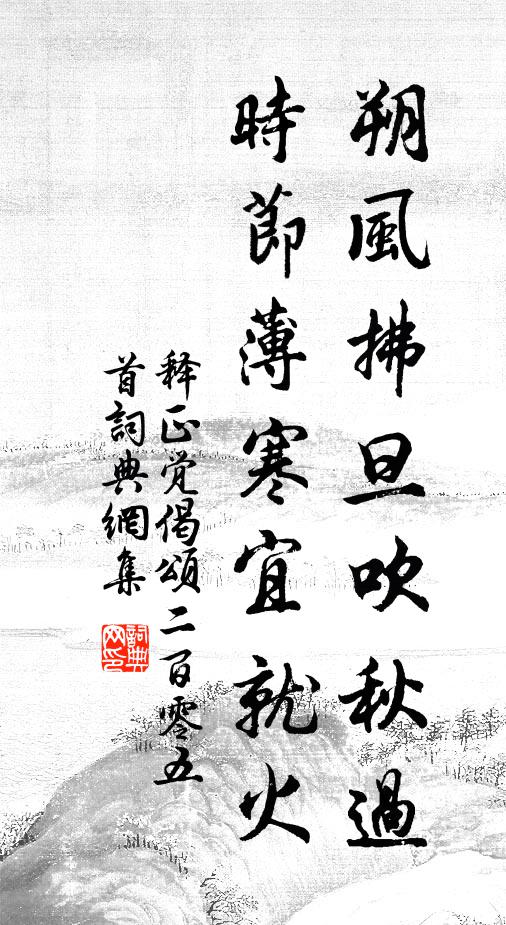 朔風拂旦吹秋過
時節薄寒宜就火
释正觉偈頌二百零五
首詞典網集
詞典
网印